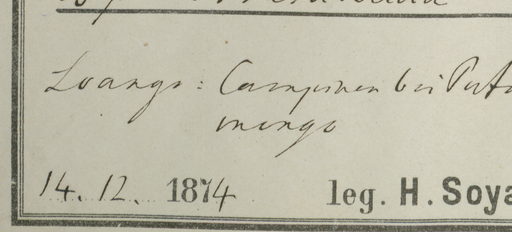 Loango: Campinen bei Puta
mengo
14. 12. 1874 leg. H. Soya